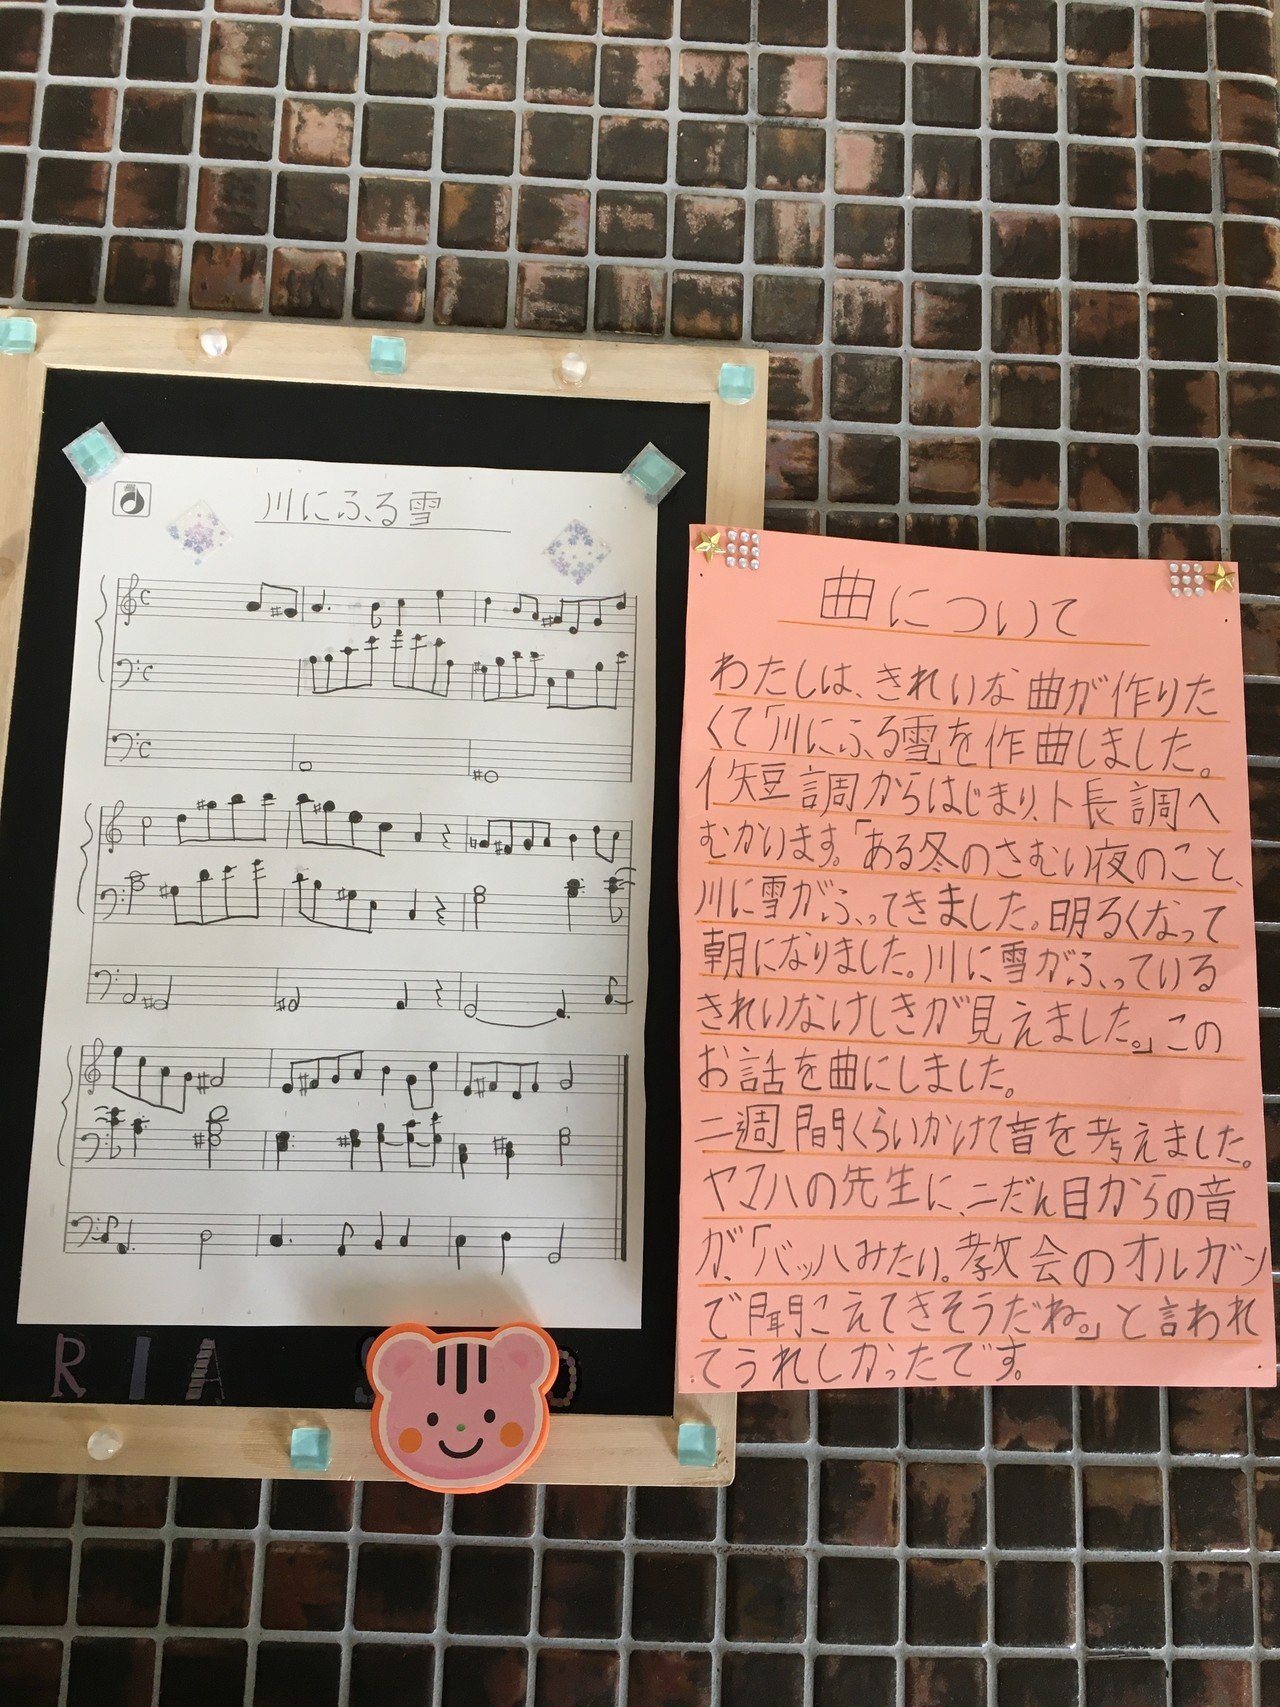 川にふる雪
RIA
曲について
わたしは、きれいな曲が作りた
くて「川にふる雪」を作曲しました。
イ短調からはじまり、ト長調へ
むかいます。「ある冬のさむい夜のこと、
川に雪がふってきました。明るくなって
朝になりました。川に雪がふっている
きれいなけしきが見えました。」この
お話を曲にしました。
二週間くらいかけて音を考えました。
ヤマハの先生に、二だん目からの音
が、「バッハみたい。教会のオルガン
で聞こえてきそうだね。」と言われ
てうれしかったです。